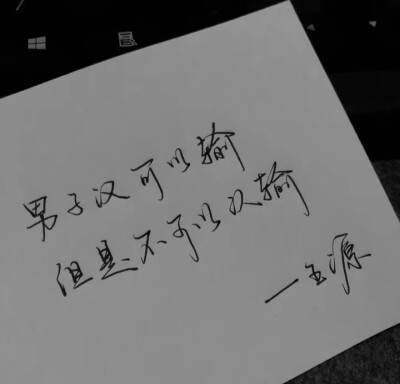 男子汉可以输
但是不可以认输
一王源